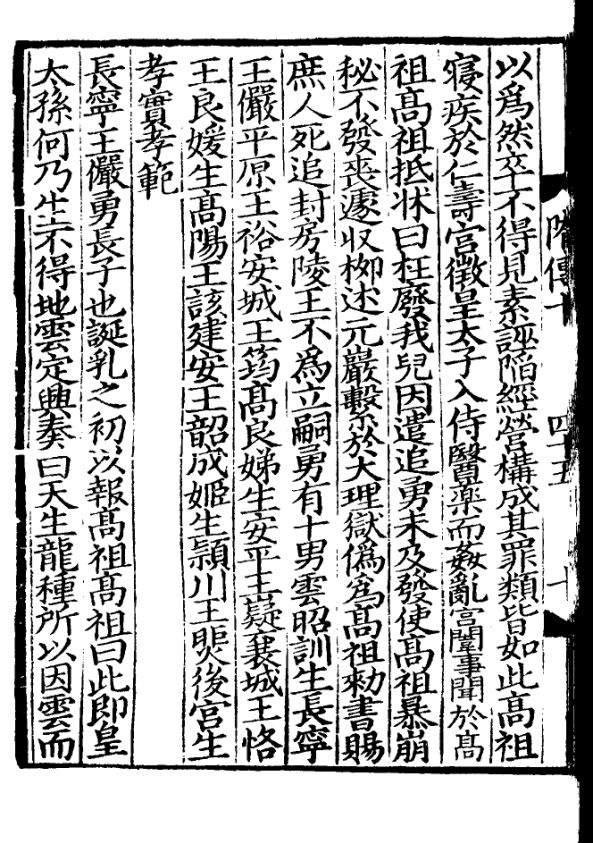 隋傳十 四十五 十
以爲然卒不得見素誣陷經營構成其罪類皆如此髙祖
寢疾於仁壽宮徵皇太子入侍醫藥而姦亂宮闈事聞於髙
祖髙祖抵牀曰枉廢我兒因遣追勇未及發使髙祖暴崩
秘不發喪遽収柳述元巖繫於大理獄僞爲髙祖勑書賜
庶人死追封房陵王不爲立嗣勇有十男雲昭訓生長寧
王儼平原王裕安城王筠髙良娣生安平王嶷襄城王恪
王良媛生髙陽王該建安王韶成姬生潁川王煚後宮生
孝實孝範
長寧王儼勇長子也誕乳之初以報髙祖髙祖曰此即皇
太孫何乃生不得地雲定興奏曰天生龍種所以因雲而